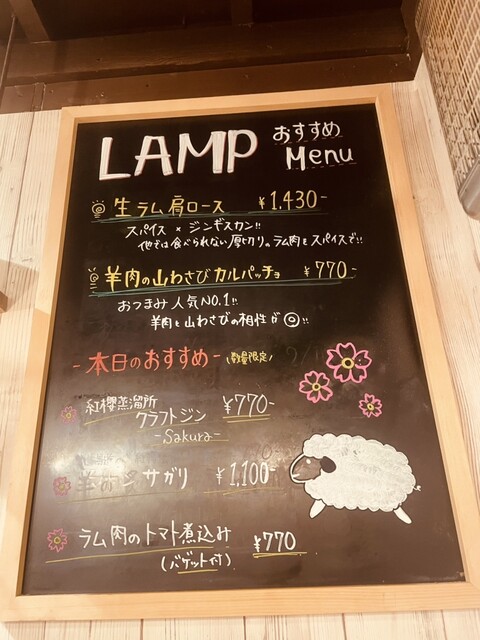 LAMP おすすめ Menu
生ラム肩ロース ¥1,430-
スパイス × ジンギスカン!!
他では食べられない厚切り。ラム肉をスパイスで!!
羊肉の山わさびカルパッチョ ¥770-
おつまみ人気NO.1!!
羊肉と山わさびの相性が◎!!
-本日のおすすめ- (数量限定)
紅櫻蒸溜所
クラフトジン ¥770-
-Sakura-
サガリ ¥1,100-
ラム肉のトマト煮込み ¥770
(バゲット付)